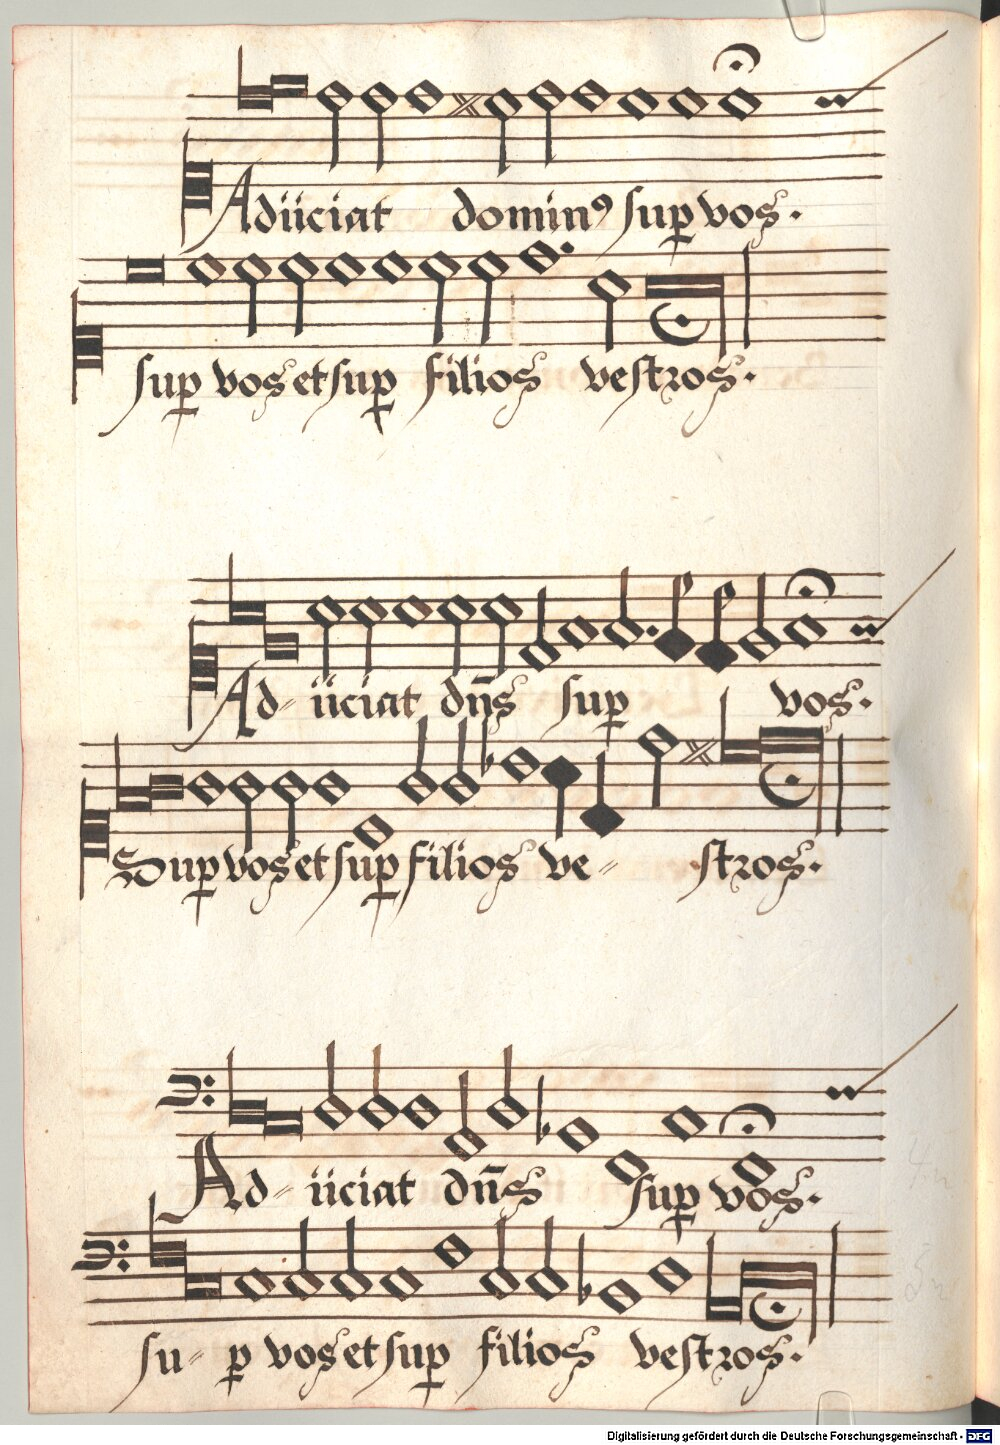 Adiiciat domin⁹ sup vos.
sup vos et sup filios vestros.
Ad- iiciat dn̄s sup vos.
Sup vos et sup filios ve- stros.
Ad- iiciat dn̄s sup vos.
su- p vos et sup filios vestros.
Digitalisierung gefördert durch die Deutsche Forschungsgemeinschaft - DFG